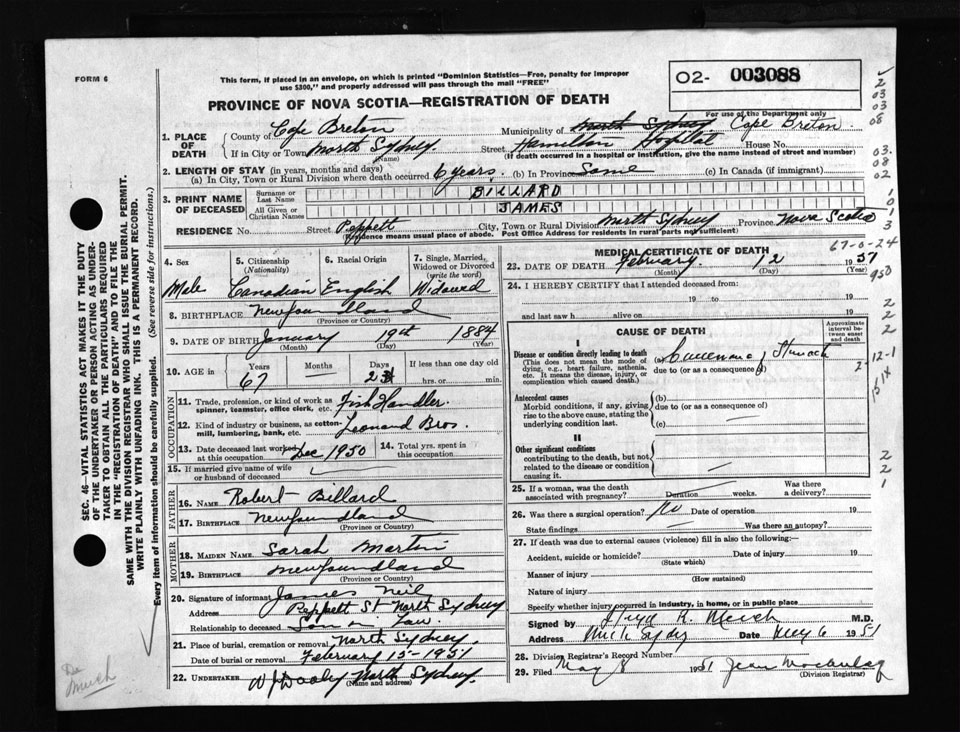 FORM 6
This form, if placed in an envelope, on which is printed "Dominion Statistics—Free, penalty for improper
use $300," and properly addressed will pass through the mail "FREE"
O2- 003088
For use of the Department only
PROVINCE OF NOVA SCOTIA—REGISTRATION OF DEATH
1. PLACE OF DEATH
County of Cape Breton Municipality of North Sydney Cape Breton
If in City or Town North Sydney (Name) Street Hamilton Hospital House No.
(If death occurred in a hospital or institution, give the name instead of street and number)
2. LENGTH OF STAY (in years, months and days)
(a) In City, Town or Rural Division where death occurred 6 years. (b) In Province Same (c) In Canada (if immigrant)
3. PRINT NAME OF DECEASED
Surname or Last Name BILLARD
All Given or Christian Names JAMES
RESIDENCE No. Street Peppett City, Town or Rural Division North Sydney Province Nova Scotia
(Residence means usual place of abode. Post Office Address for residents in rural parts not sufficient)
4. Sex Male
5. Citizenship (Nationality) Canadian
6. Racial Origin English
7. Single, Married, Widowed or Divorced (write the word) Widowed
8. BIRTHPLACE Newfoundland
(Province or Country)
9. DATE OF BIRTH January 19th 1884
(Month) (Day) (Year)
10. AGE in Years 67 Months Days 24 If less than one day old
hrs. or min.
OCCUPATION
11. Trade, profession, or kind of work as spinner, teamster, office clerk, etc. Fish Handler.
12. Kind of industry or business, as cotton-mill, lumbering, bank, etc. Leonard Bros.
13. Date deceased last worked at this occupation Dec 1950
14. Total yrs. spent in this occupation
15. If married give name of wife or husband of deceased
FATHER
16. NAME Robert Billard
17. BIRTHPLACE Newfoundland
(Province or Country)
MOTHER
18. MAIDEN NAME Sarah Martin
19. BIRTHPLACE Newfoundland
(Province or Country)
20. Signature of informant James Neil
Address Peppett St North Sydney
Relationship to deceased Son in Law
21. Place of burial, cremation or removal North Sydney.
Date of burial or removal February 15 - 1951
22. UNDERTAKER W J Dooley North Sydney.
(Name and address)
MEDICAL CERTIFICATE OF DEATH
67-0-24
23. DATE OF DEATH February 12 1951
(Month) (Day) (Year)
24. I HEREBY CERTIFY that I attended deceased from:
19 to 19
and last saw h alive on 19
CAUSE OF DEATH
Approximate interval between onset and death
I
Disease or condition directly leading to death
(This does not mean the mode of dying, e.g., heart failure, asthenia, etc. It means the disease, injury, or complication which caused death.)
(a) Carcinoma of Stomach
due to (or as a consequence of)
Antecedent causes
Morbid conditions, if any, giving rise to the above cause, stating the underlying condition last.
(b)
due to (or as a consequence of)
(c)
II
Other significant conditions
contributing to the death, but not related to the disease or condition causing it.
25. If a woman, was the death associated with pregnancy? Duration weeks. Was there a delivery?
26. Was there surgical operation? No Date of operation 19
State findings Was there an autopsy?
27. If death was due to external causes (violence) fill in also the following:—
Accident, suicide or homicide? Date of injury 19
(State which)
Manner of injury
(How sustained)
Nature of injury
Specify whether injury occurred in industry, in home, or in public place
Signed by R. Meech M.D.
Address Date May 6 1951
28. Division Registrar's Record Number
29. Filed May 8 1951 Jean
(Division Registrar)
SEC. 46—VITAL STATISTICS ACT MAKES IT THE DUTY
OF THE UNDERTAKER OR PERSON ACTING AS UNDER-
TAKER TO OBTAIN ALL THE PARTICULARS REQUIRED
IN THE "REGISTRATION OF DEATH" AND TO FILE THE
SAME WITH THE DIVISION REGISTRAR WHO SHALL ISSUE THE BURIAL PERMIT.
WRITE PLAINLY WITH UNFADING INK. THIS IS A PERMANENT RECORD.
Every item of information should be carefully supplied. (See reverse side for instructions.)
Dr Meech
2
03
03
08
03.
08
02
1
0
1
3
950
2
2
2
12-1
2
2
1